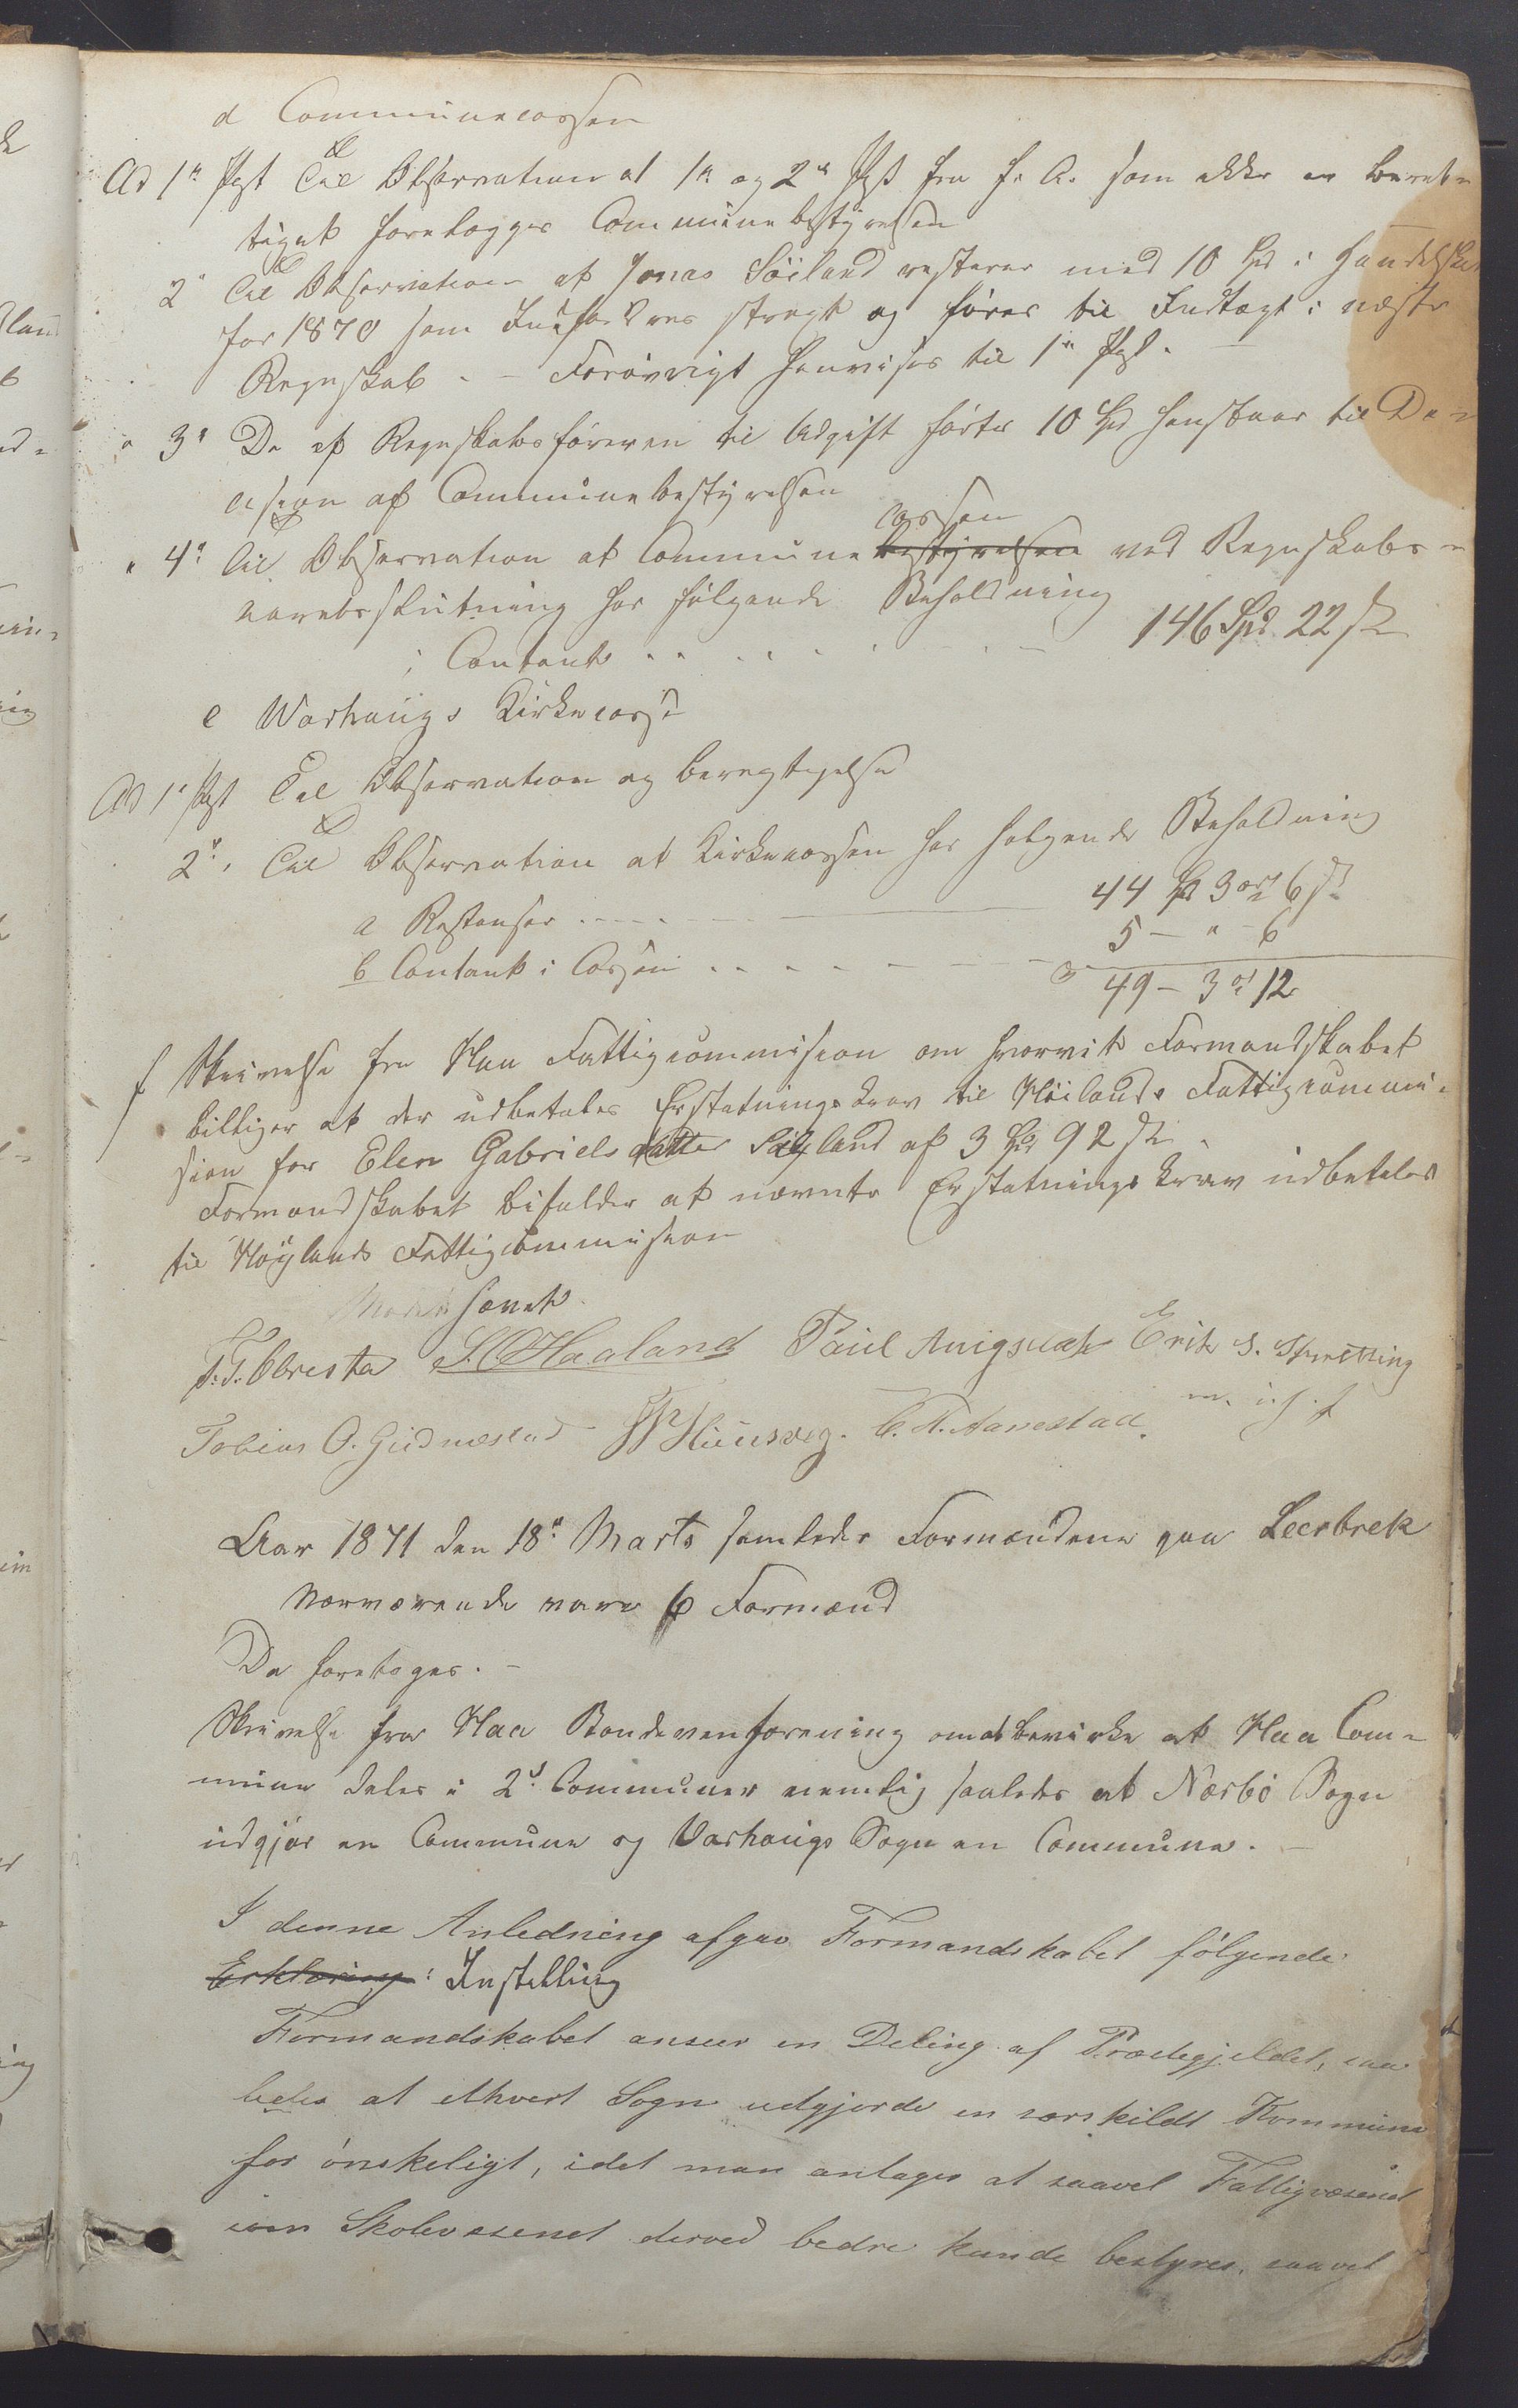 d Communecassen
Ad 1n Post Til Observation at 1n og 2n Post fra f. A. som ikke er beret-
tiget foretages Communebestyrelsen
2n Til Observation at Jonas Söiland resterer med 10 Spd i
for 1870 som Indfordres strengt og föres til Indtægt i næste
Regnskab. – Forövrigt henvises til 1n Post.
" 3n De af Regnskabsföreren til Udgift förte 10 Spd henstaar til De-
cision af Communebestyrelsen
" 4n Til Observation at Commune bestyrelsen cassen ved Regnskabs-
aarets slutning har fölgende Beholdning
i Contant . . . . . . 146 Spd 22 s
e Warhaugs Kirkecasse
Ad 1n Post Til Observation og berigtigelse
2n Til Observation at Kirkecassen har fölgende Beholdning
a Restanser . . . . 44 Spd 3 ort 6 s
b Contant i Cassen . . . . . 5 – " – 6
49 – 3 ort 12
f Skrivelse fra Haa Fattigcommission om hvorvit Formandskabet
billiger at der udbetales Erstatningskrav til Höilands Fattigcommi-
sion for Elen Gabrielsdatter af 3 Spd 92 s.
Formandskabet bifalder at nævnte Erstatningskrav udbetales
til Höylands Fattigcommission
Mødet hævet.
T. T. Obrestad S. O Haaland Paul Erik S. Skretting
Tobias O. Gudmestad Huusveg. C. R. Aanestad. m. i. h. f
Aar 1871 den 18n Marts samledes Formændene paa Leerbrek
Nærværende vare 6 Formænd
Da foretoges. –
Skrivelse fra Haa Bondevenforening om at bevirke at Haa Com-
mune deles i 2de Communer nemlig saaledes at Nærbö Sogn
udgjör en Commune og Varhougs Sogn en Commune. –
I denne Anledning afgav Formandskabet fölgende
Erklæring: Instilling
Formandskabet anseer en Deling af Præstegjeldet, saa
ledes at ethvert Sogn udgjorde en særskildt Kommune
for önskeligt, idet man antager at saavel Fattigvæsenet
som Skolevæsenet derved bedre kunde bestyres, saavel